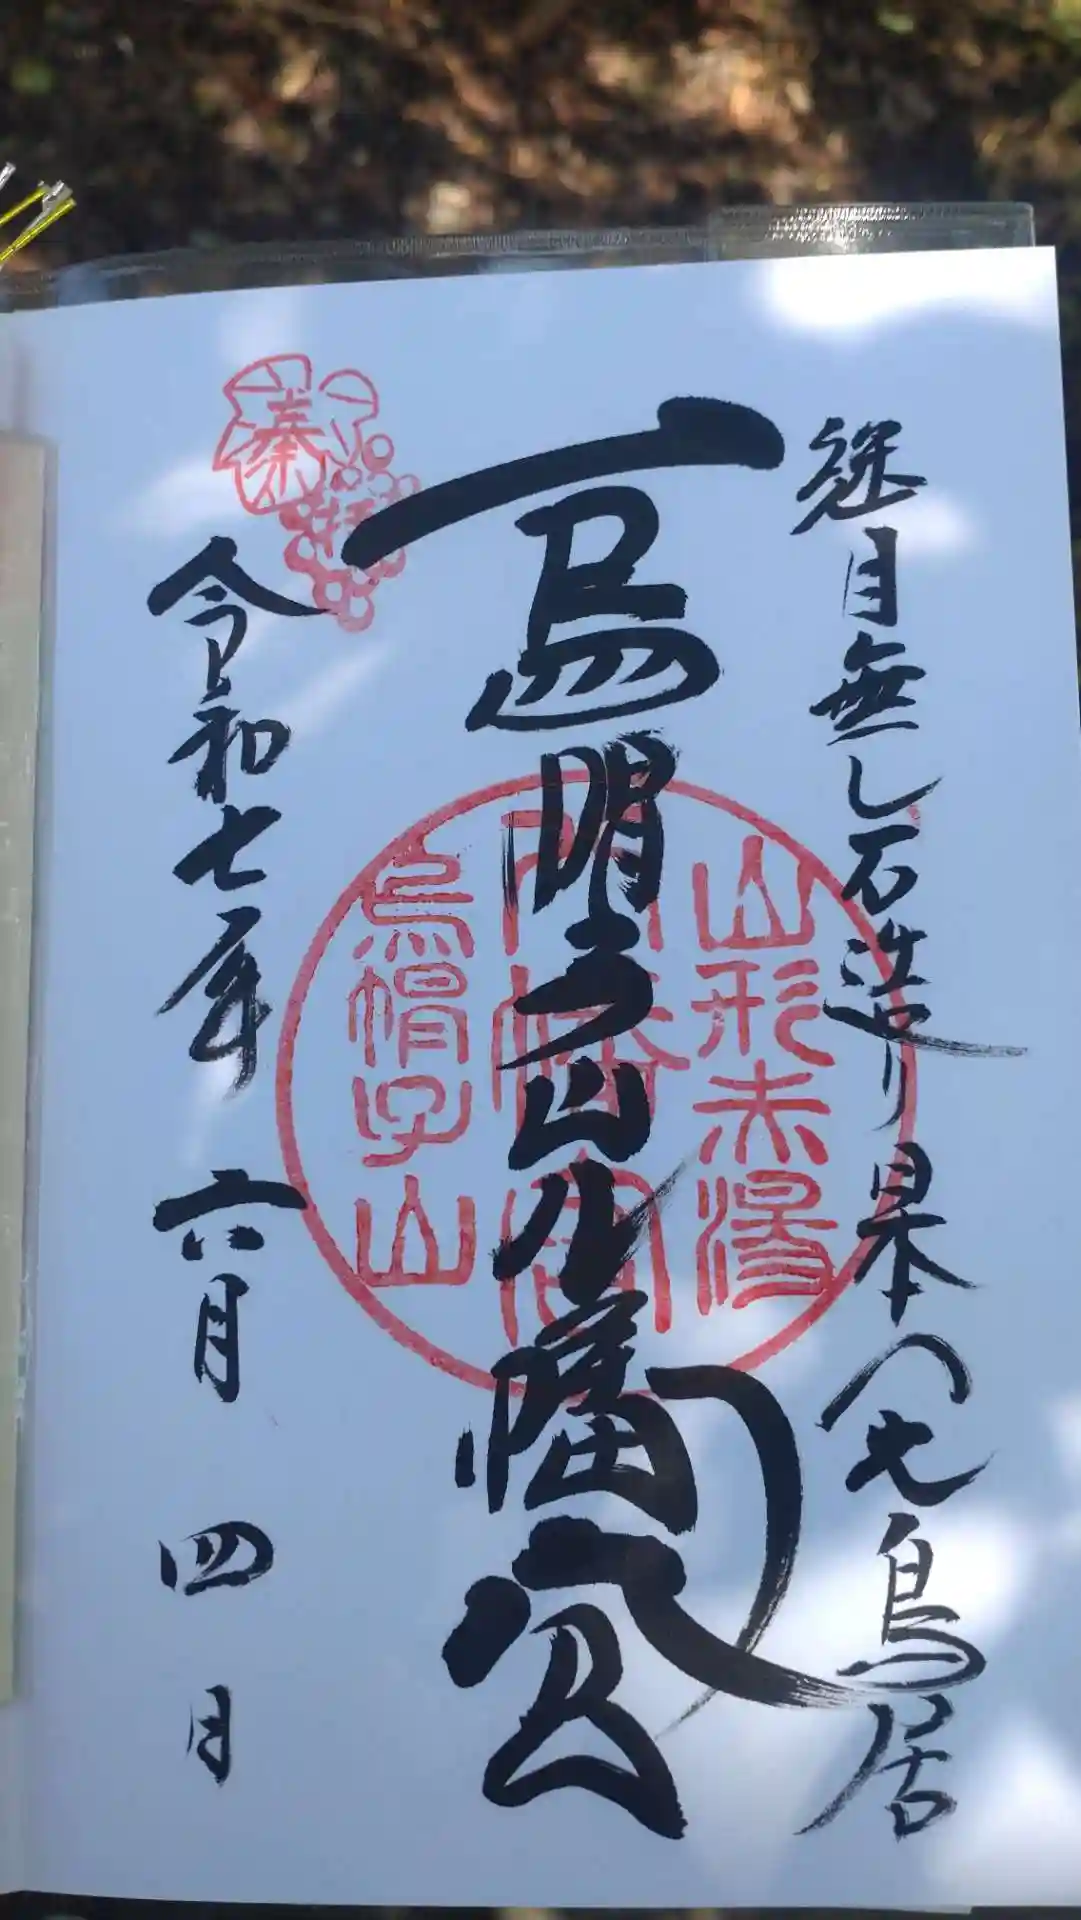 継目無し石造り日本一の大鳥居
烏帽子山八幡宮
令和七年 六月 四日
奉拝
山形赤湯
八幡宮
烏帽子山